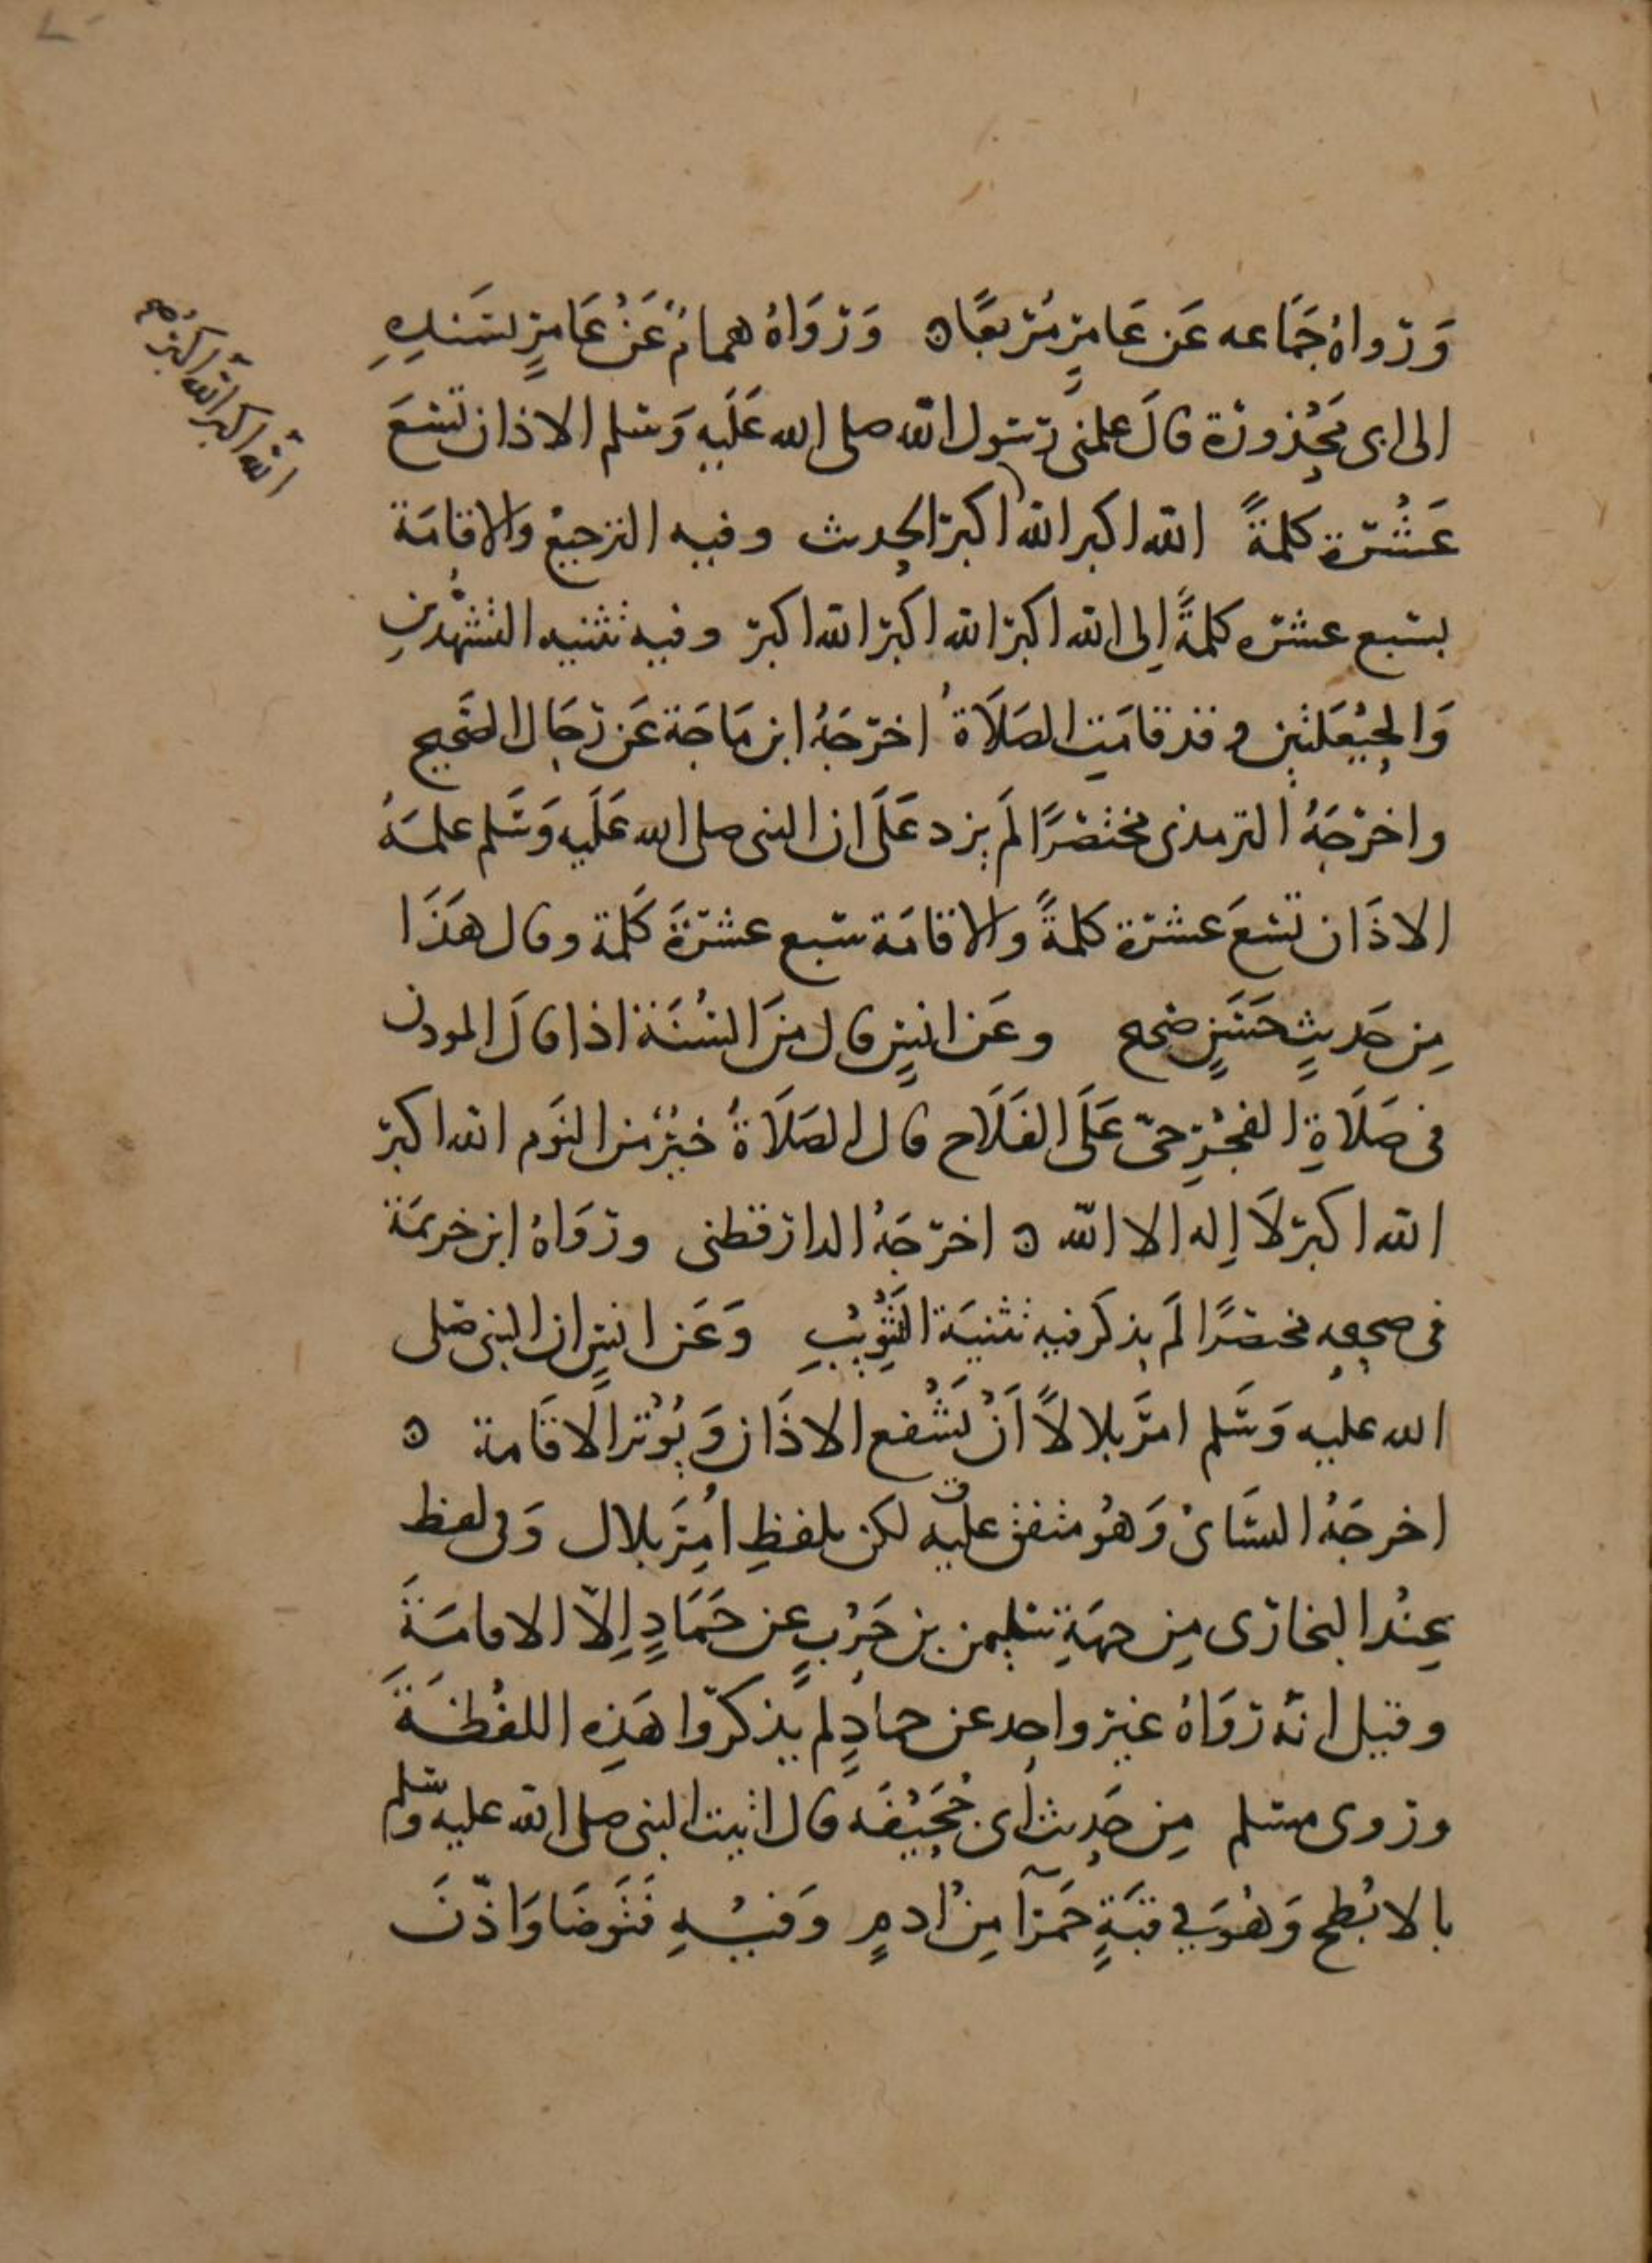 وَرواهُ جَمَاعه عَن عَامِرٍ مُربعًا ه وَرَوَاهُ همامٌ عَنْ عَامِرٍ بسَندِهِ
الى ابى مَحْذورَة قالَ علمنى رسول الله صلى الله عَلَيهِ وَسلم الاذان تسْعَ
عَشْرة كلمةً الله اكبر الله اكبر الحِدىث وفيه الترجيع والاقامَة
بسبع عشره كلمةً اِلى الله اكبر الله اكبر الله اكبر وفيه تثنيه التشهُّدينِ
وَالحِيْعَلتين و قد قامَتِ الصَلَاةُ اخرَجَهُ ابن مَاجَة عَن رجَال الصَحِيح
واخرَجَهُ الترمذى مختصَرًا لَم يزد عَلَى ان النبى صلى الله عَلَيه وَسَلم علمَهُ
الاذَان تسْعَ عشرة كلمةً والاقامَة سبع عشرَةَ كَلمة وقال هَذَا
مِن حَديثٍ حَسَنٍ صَحىح وعَن انسٍ قال مِنَ السُنَة اذا قالَ الموذن
فى صَلَاةِ الفجْرِ حىّ عَلَى الفَلَاح قال الصَلَاةُ خيْرٌ من النَوم الله اكبر
الله اكبر لَا اِله الا الله ه اخرَجَهُ الدارقطنى ورَوَاهُ ابن خزيمَة
فى صحىحه مختصَرًا لَم يذكَر فيه تثنيَة التَثْوِيْبِ وَعَن انسٍ ان النبى صَلى
الله عليه وَسَلم امَر بلالاً اَنْ يَشْفع الاذَان وَيُوْتر الَاقَامة ه
اخرجَهُ النسَائىُ وَهُو متفق عليه لكن بلفظِ اُمِرَ بلال وَفى لفظ
عِنْد البخارى مِن جهَةِ سليمن بن حَرْبٍ عن حَمَادٍ اِلاّ الاقامَةَ
وقيل انّه رَوَاهُ غير واحِد عن حمادٍ لم يذكرُوا هَذِهِ اللفْظَةَ
وروى مسلم مِن حَديث اَبى جُحَيْفَه قال اتيت النبى صلى الله عليه وسلم
بالابْطح وَهُوَ فِي قبَةٍ حَمرآ مِنْ ادمٍ وَفيْهِ فَتَوضَا وَاذّنَ
الله اكبر الله اكبر صح